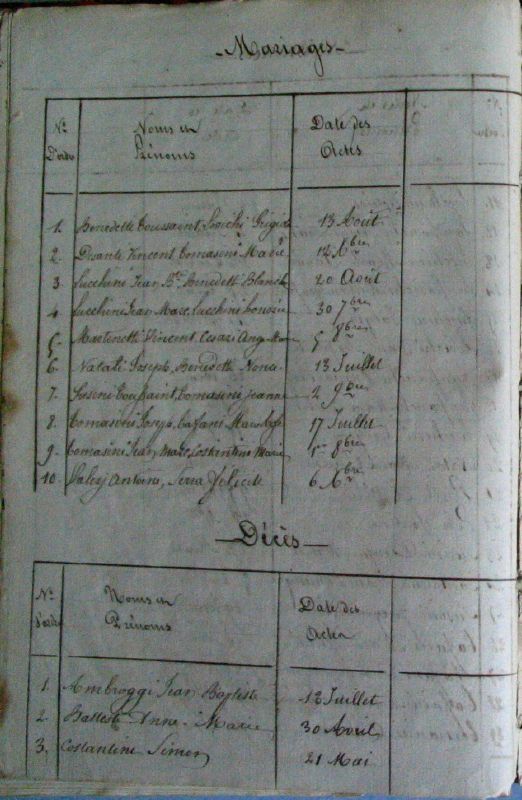 Mariages
Nos Noms et Date des
D'ordre Prénoms Actes
1. Benedetti Toussaint, 13 Août
2. Vincent Tomasini Marie 12 Xbre
3 Lucchini Jean Bte Benedetti Blanche 20 Août
4 Lucchini Jean Marc, Lucchini Louise 30 7bre
5. Martinetti Vincent Cesari Ang. Marie 5 8bre
6. Natali Joseph, Benedetti Nonce 13 Juillet
7. Toussaint, Tomasini Jeanne 2 9bre
8. Tomasini Joseph, 17 Juillet
9. Tomasini Jean Marc, Costantini Marie 1er 8bre
10. Valery Antoine, Serra Félicité 6 Xbre
Décès
Nos Noms et Date des
d'ordre Prénoms Actes
1. Ambroggi Jean Baptiste 12 Juillet
2. Battesti Anne-Marie 30 Avril
3. Costantini Simon 21 Mai